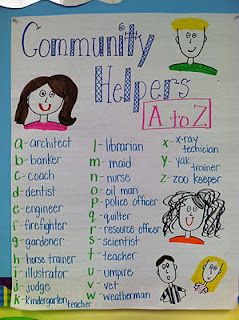 Community
Helpers
A to Z
a-architect
b-banker
c-coach
d-dentist
e-engineer
f-firefighter
g-gardener
h-horse trainer
i-illustrator
j-judge
k-kindergarten teacher
l-librarian
m-maid
n-nurse
o-oil man
p-police officer
q-quilter
r-resource officer
s-scientist
t-teacher
u-umpire
v-vet
w-weatherman
x-x-ray
techician
y-yak
trainer
z-zoo keeper